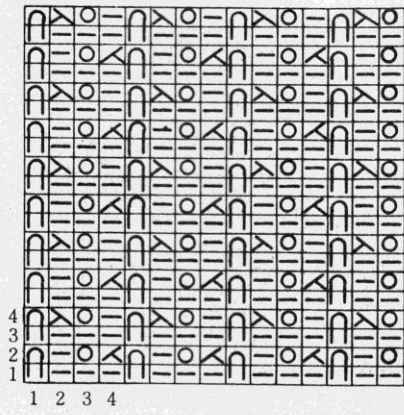 4
3
2
1
1 2 3 4